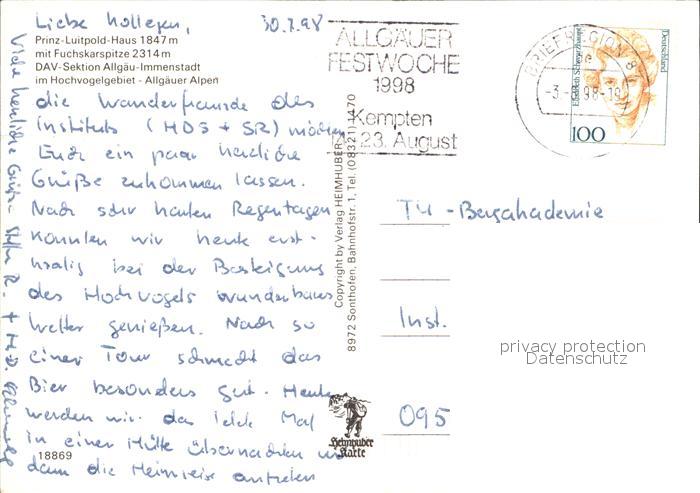 Liebe Kollegen, 30.7.98
Prinz-Luitpold-Haus 1847 m
mit Fuchskarspitze 2314 m
DAV-Sektion Allgäu-Immenstadt
im Hochvogelgebiet - Allgäuer Alpen
die Wanderfreunde des
Instituts (HDS + SR) möchten
Euch ein paar herzliche
Grüße zukommen lassen.
Nach sehr harten Regentagen
konnten wir heute erst-
malig bei der Besteigung
des Hochvogels wunderbares
Wetter genießen. Nach so
einer Tour schmeckt das
Bier besonders gut. Heute
werden wir das letzte Mal
in einer Hütte übernachten und
dann die Heimreise antreten
18869
Viele herzliche Grüße R. + H.D.
Copyright by Verlag HEIMHUBER
8972 Sonthofen, Bahnhofstr. 1, Tel. (08321)
Heimhuber
Karte
ALLGÄUER
FESTWOCHE
1998
Kempten
23. August
BRIEFREGION 87
Elisabeth Schwarzhaupt
Deutschland
100
TU - Bergakademie
Inst.
095
privacy protection
Datenschutz